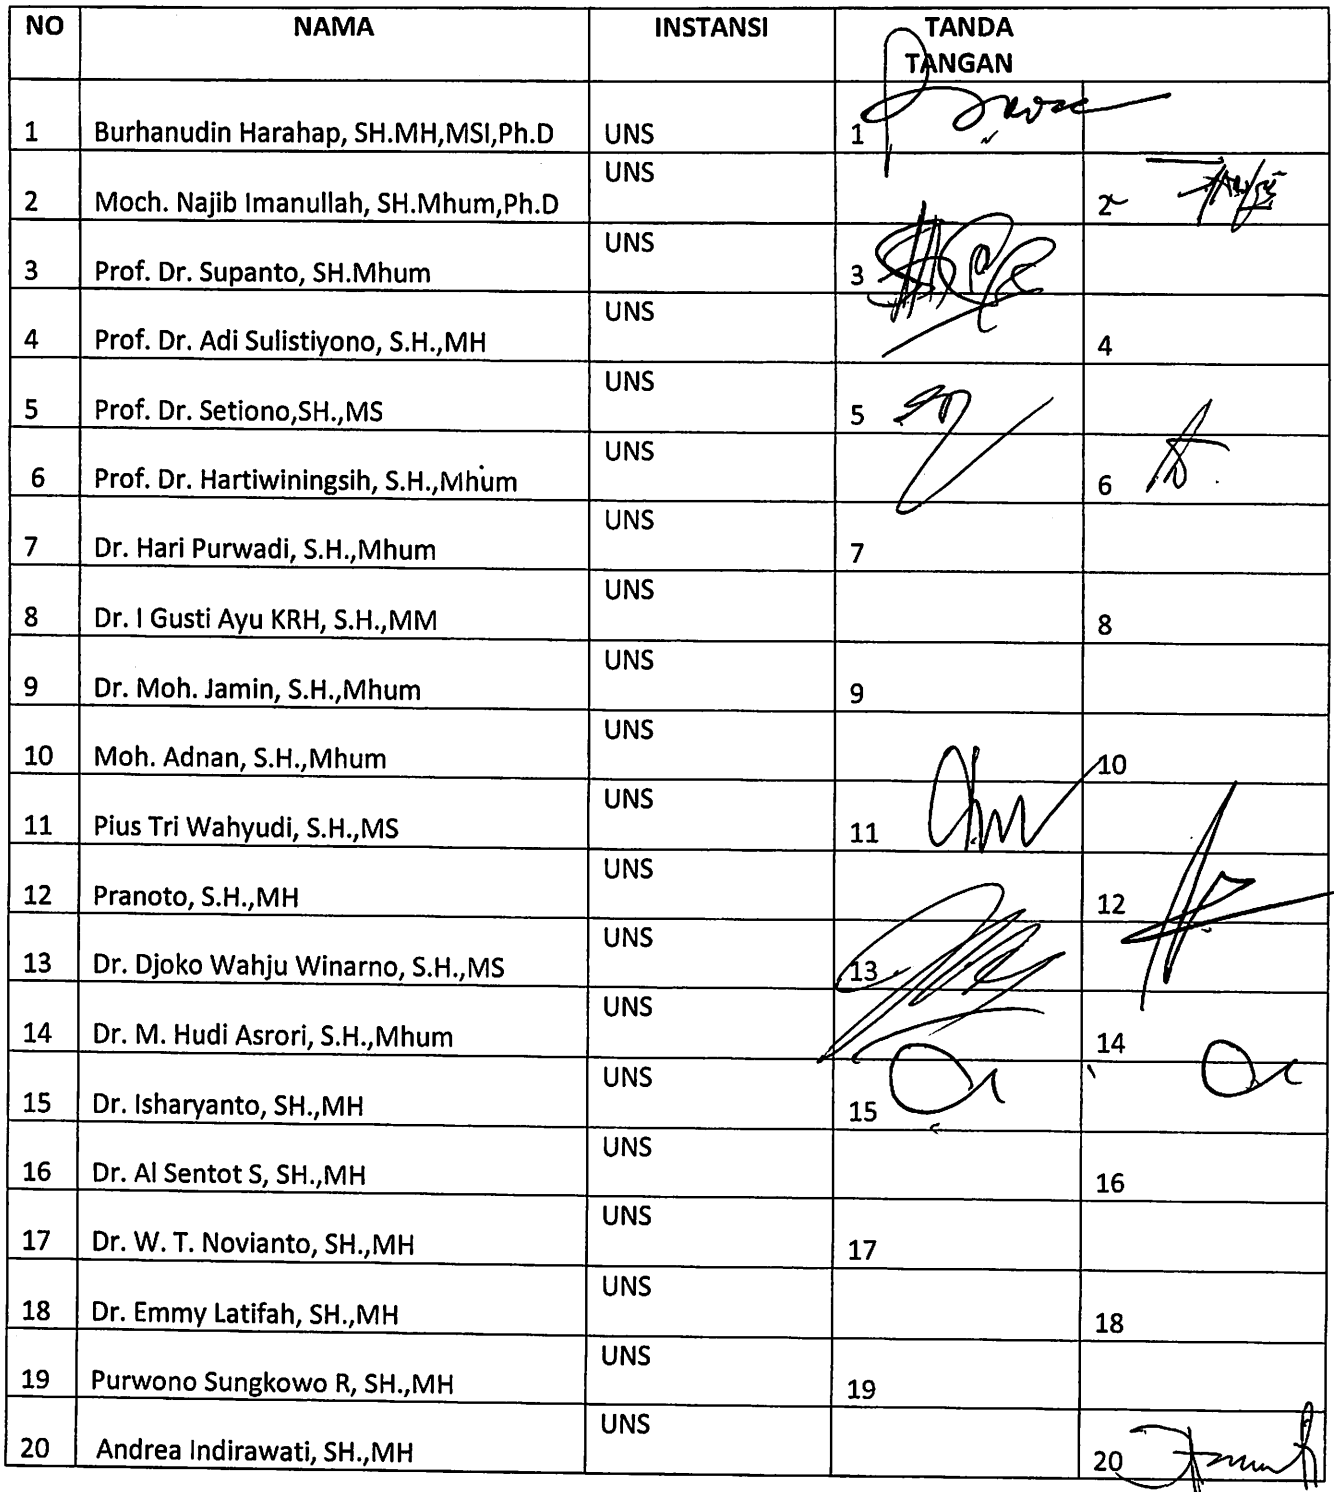 NO NAMA INSTANSI TANDA
TANGAN
1 Burhanudin Harahap, SH.MH,MSI,Ph.D UNS 1
2 Moch. Najib Imanullah, SH.Mhum,Ph.D UNS 2
3 Prof. Dr. Supanto, SH.Mhum UNS 3
4 Prof. Dr. Adi Sulistiyono, S.H.,MH UNS 4
5 Prof. Dr. Setiono,SH.,MS UNS 5
6 Prof. Dr. Hartiwiningsih, S.H.,Mhum UNS 6
7 Dr. Hari Purwadi, S.H.,Mhum UNS 7
8 Dr. I Gusti Ayu KRH, S.H.,MM UNS 8
9 Dr. Moh. Jamin, S.H.,Mhum UNS 9
10 Moh. Adnan, S.H.,Mhum UNS 10
11 Pius Tri Wahyudi, S.H.,MS UNS 11
12 Pranoto, S.H.,MH UNS 12
13 Dr. Djoko Wahju Winarno, S.H.,MS UNS 13
14 Dr. M. Hudi Asrori, S.H.,Mhum UNS 14
15 Dr. Isharyanto, SH.,MH UNS 15
16 Dr. Al Sentot S, SH.,MH UNS 16
17 Dr. W. T. Novianto, SH.,MH UNS 17
18 Dr. Emmy Latifah, SH.,MH UNS 18
19 Purwono Sungkowo R, SH.,MH UNS 19
20 Andrea Indirawati, SH.,MH UNS 20